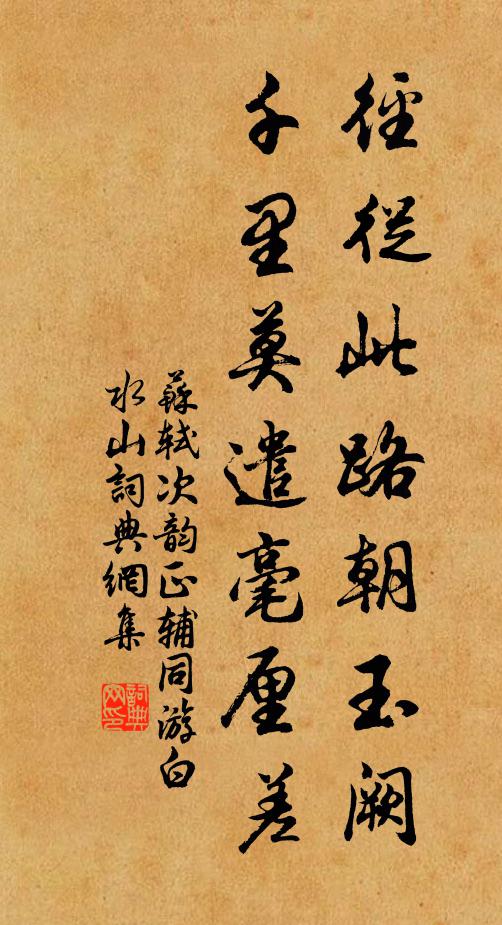 徑從此路朝玉闕
千里莫遣毫厘差
蘇軾次韵正輔同游白
水山詞典網集
詞典
网印